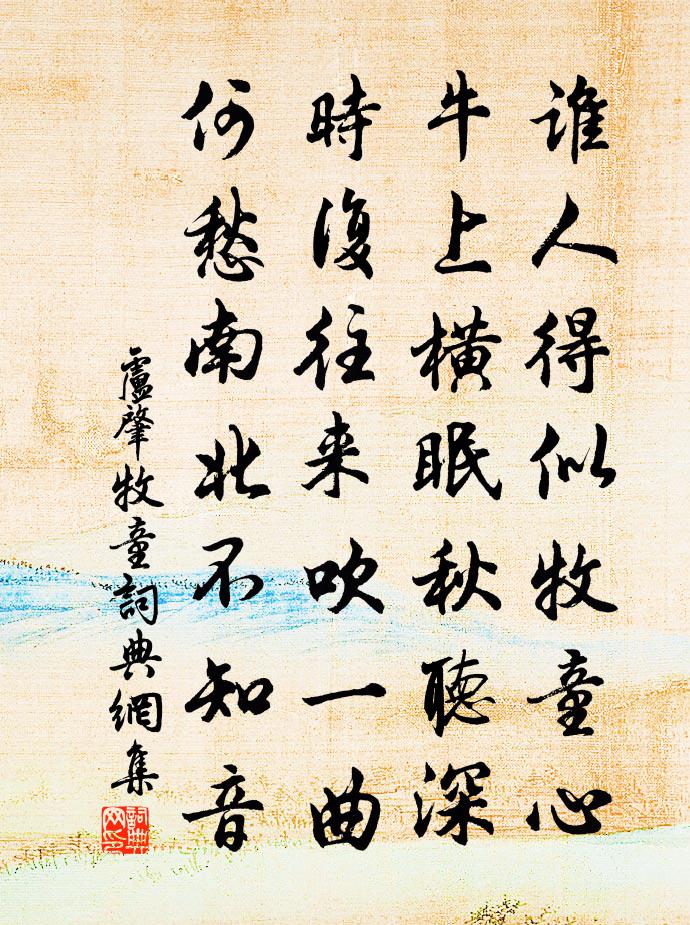 誰人得似牧童心
牛上橫眠秋聽深
時復往来吹一曲
何愁南北不知音
盧肇牧童詞典網集
詞典
网印